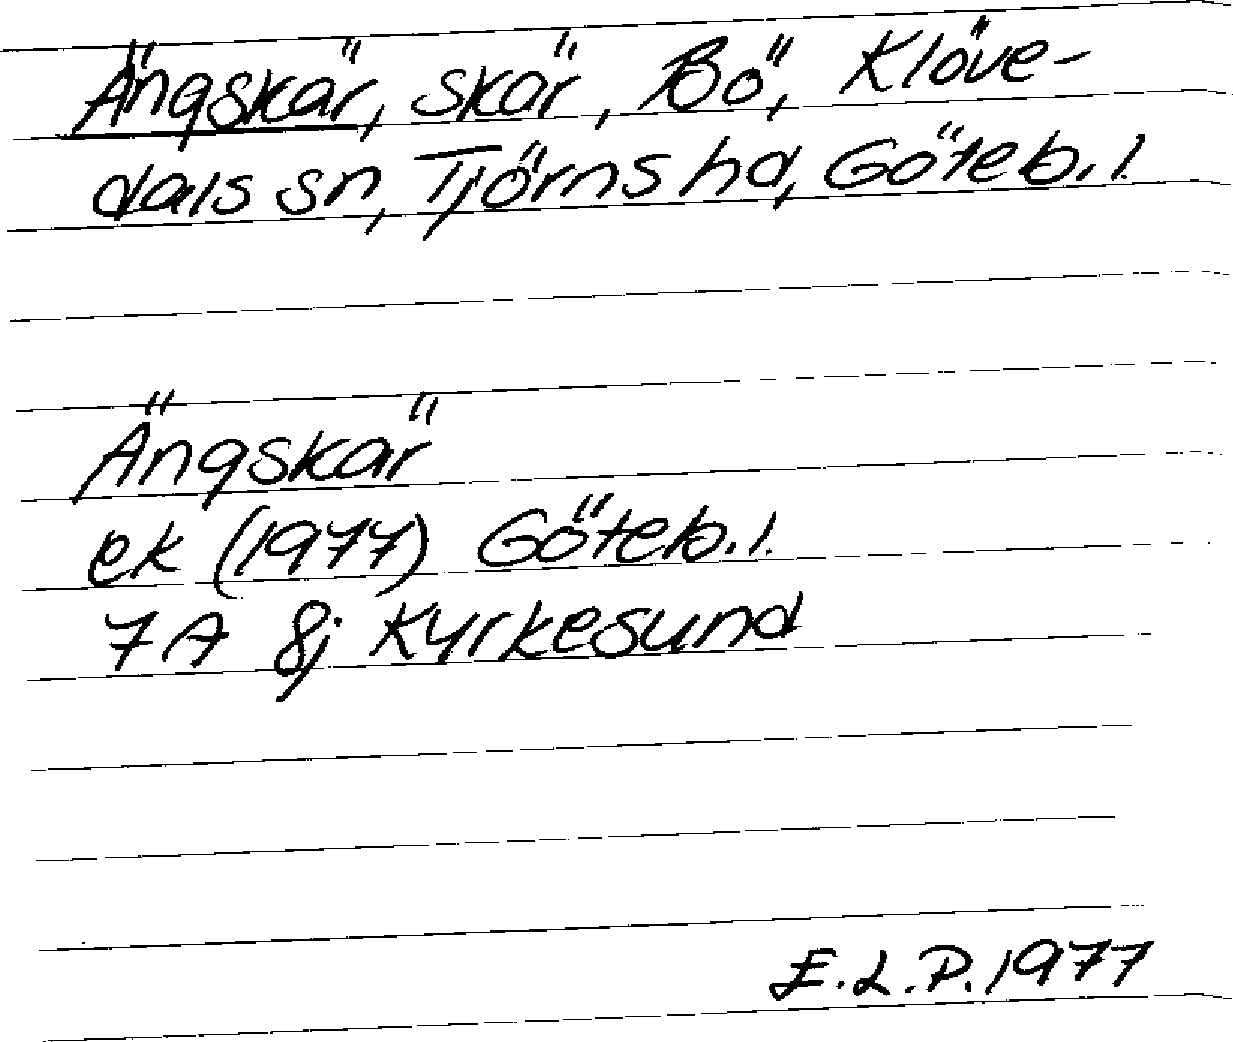 Ängskär, skär, Bö, Klöve-
dals sn, Tjörns hd, Göteb.l.
Ängskär
ek (1977) Göteb.l.
7A 8j Kyrkesund
E.L.P. 1977